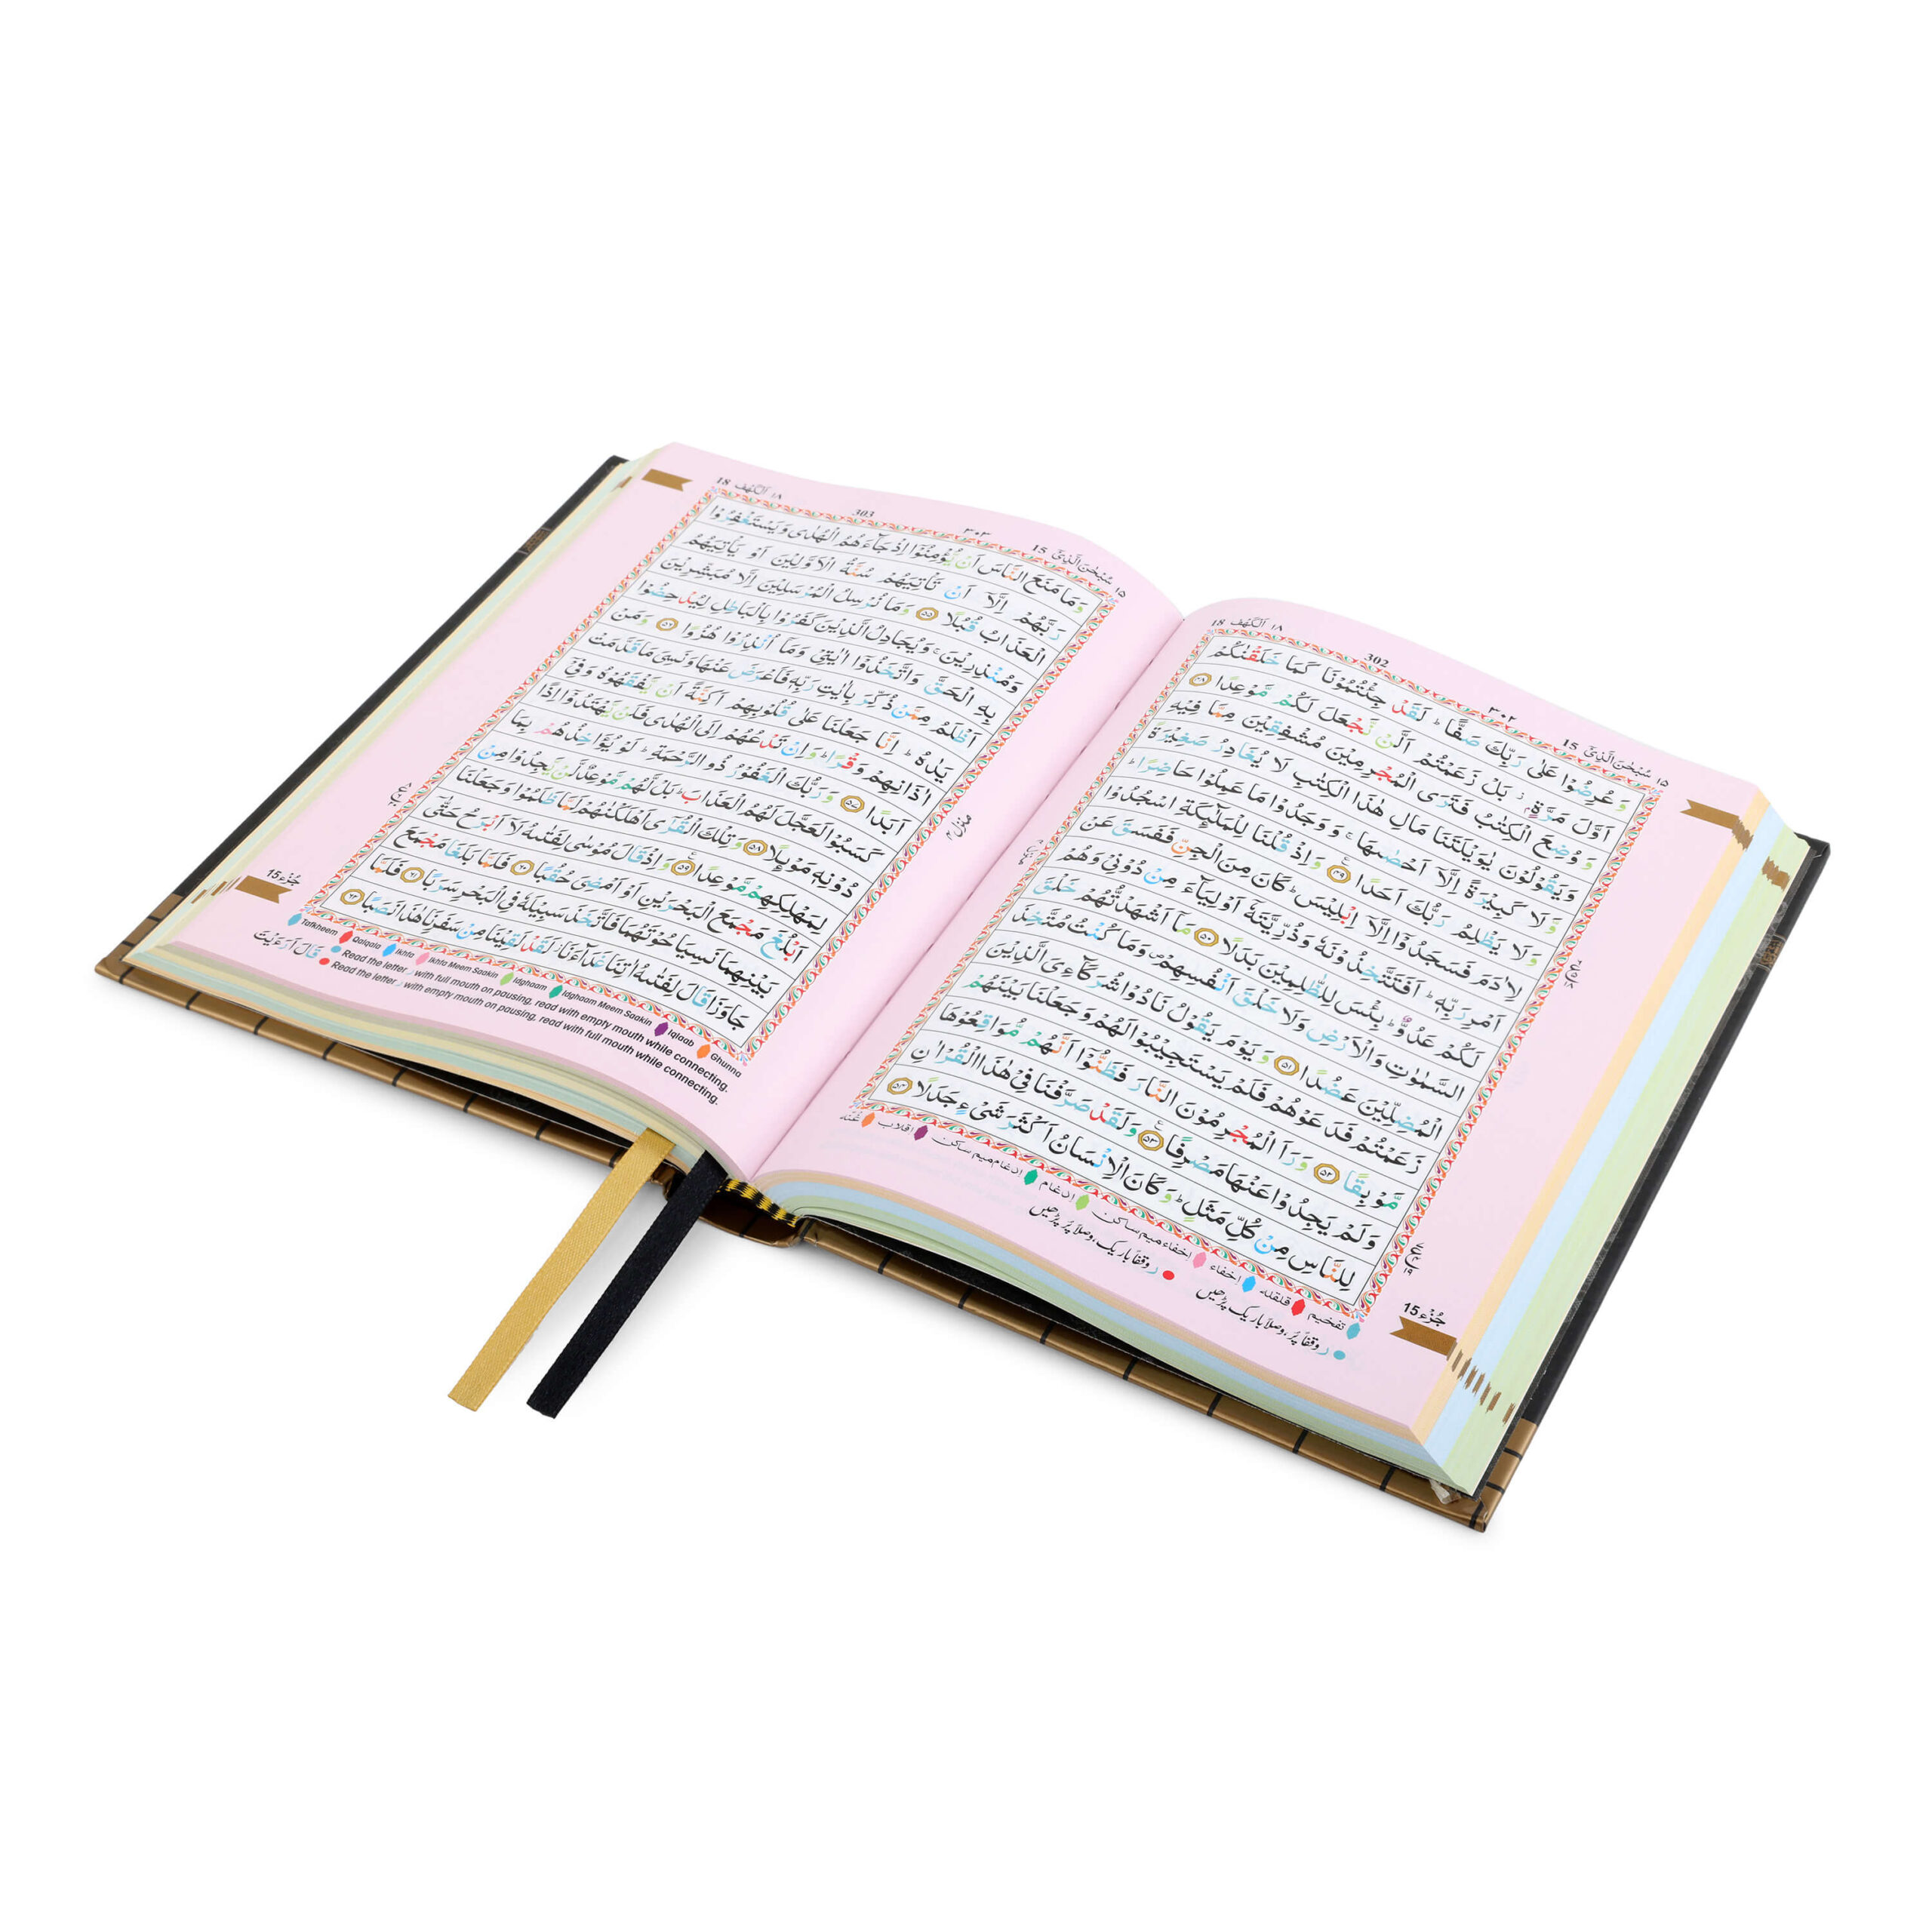 ۱۵ سُبْحٰنَ الَّذِىْۤ 15
۳۰۲ 302
۱۸ اَلْكَهْف 18
وَعُرِضُوْا عَلٰى رَبِّكَ صَفًّا ؕ لَقَدْ جِئْتُمُوْنَا كَمَا خَلَقْنٰكُمْ
اَوَّلَ مَرَّةٍۭ ؗ بَلْ زَعَمْتُمْ اَلَّنْ نَّجْعَلَ لَكُمْ مَّوْعِدًا ﴿۴۸﴾
وَوُضِعَ الْكِتٰبُ فَتَرَى الْمُجْرِمِيْنَ مُشْفِقِيْنَ مِمَّا فِيْهِ
وَيَقُوْلُوْنَ يٰوَيْلَتَنَا مَالِ هٰذَا الْكِتٰبِ لَا يُغَادِرُ صَغِيْرَةً
وَّلَا كَبِيْرَةً اِلَّاۤ اَحْصٰىهَا ۚ وَوَجَدُوْا مَا عَمِلُوْا حَاضِرًا ؕ
وَلَا يَظْلِمُ رَبُّكَ اَحَدًا ﴿۴۹﴾ وَاِذْ قُلْنَا لِلْمَلٰٓئِكَةِ اسْجُدُوْا
لِاٰدَمَ فَسَجَدُوْۤا اِلَّاۤ اِبْلِيْسَ ؕ كَانَ مِنَ الْجِنِّ فَفَسَقَ عَنْ
اَمْرِ رَبِّهٖ ؕ اَفَتَتَّخِذُوْنَهٗ وَذُرِّيَّتَهٗۤ اَوْلِيَآءَ مِنْ دُوْنِىْ وَهُمْ
لَكُمْ عَدُوٌّ ؕ بِئْسَ لِلظّٰلِمِيْنَ بَدَلًا ﴿۵۰﴾ مَاۤ اَشْهَدْتُّهُمْ خَلْقَ
السَّمٰوٰتِ وَالْاَرْضِ وَلَا خَلْقَ اَنْفُسِهِمْ ۪ وَمَا كُنْتُ مُتَّخِذَ
الْمُضِلِّيْنَ عَضُدًا ﴿۵۱﴾ وَيَوْمَ يَقُوْلُ نَادُوْا شُرَكَآءِىَ الَّذِيْنَ
زَعَمْتُمْ فَدَعَوْهُمْ فَلَمْ يَسْتَجِيْبُوْا لَهُمْ وَجَعَلْنَا بَيْنَهُمْ
مَّوْبِقًا ﴿۵۲﴾ وَرَاَ الْمُجْرِمُوْنَ النَّارَ فَظَنُّوْۤا اَنَّهُمْ مُّوَاقِعُوْهَا
وَلَمْ يَجِدُوْا عَنْهَا مَصْرِفًا ﴿۵۳﴾ وَلَقَدْ صَرَّفْنَا فِىْ هٰذَا الْقُرْاٰنِ
لِلنَّاسِ مِنْ كُلِّ مَثَلٍ ؕ وَكَانَ الْاِنْسَانُ اَكْثَرَ شَىْءٍ جَدَلًا ﴿۵۴﴾
جُزْء 15
تفخیم قلقلہ اخفاء اخفاء میم ساکن ادغام ادغام میم ساکن اقلاب غنہ
ر وقفاً پُر، وصلاً باریک پڑھیں ر وقفاً باریک، وصلاً پُر پڑھیں
۱۵ سُبْحٰنَ الَّذِىْۤ 15
۳۰۳ 303
۱۸ اَلْكَهْف 18
وَمَا مَنَعَ النَّاسَ اَنْ يُّؤْمِنُوْۤا اِذْ جَآءَهُمُ الْهُدٰى وَيَسْتَغْفِرُوْا
رَبَّهُمْ اِلَّاۤ اَنْ تَاْتِيَهُمْ سُنَّةُ الْاَوَّلِيْنَ اَوْ يَاْتِيَهُمُ
الْعَذَابُ قُبُلًا ﴿۵۵﴾ وَمَا نُرْسِلُ الْمُرْسَلِيْنَ اِلَّا مُبَشِّرِيْنَ
وَمُنْذِرِيْنَ ۚ وَيُجَادِلُ الَّذِيْنَ كَفَرُوْا بِالْبَاطِلِ لِيُدْحِضُوْا
بِهِ الْحَقَّ وَاتَّخَذُوْۤا اٰيٰتِىْ وَمَاۤ اُنْذِرُوْا هُزُوًا ﴿۵۶﴾ وَمَنْ
اَظْلَمُ مِمَّنْ ذُكِّرَ بِاٰيٰتِ رَبِّهٖ فَاَعْرَضَ عَنْهَا وَنَسِىَ مَا قَدَّمَتْ
يَدٰهُ ؕ اِنَّا جَعَلْنَا عَلٰى قُلُوْبِهِمْ اَكِنَّةً اَنْ يَّفْقَهُوْهُ وَفِىْۤ
اٰذَانِهِمْ وَقْرًا ؕ وَاِنْ تَدْعُهُمْ اِلَى الْهُدٰى فَلَنْ يَّهْتَدُوْۤا اِذًا
اَبَدًا ﴿۵۷﴾ وَرَبُّكَ الْغَفُوْرُ ذُو الرَّحْمَةِ ؕ لَوْ يُؤَاخِذُهُمْ بِمَا
كَسَبُوْا لَعَجَّلَ لَهُمُ الْعَذَابَ ؕ بَلْ لَّهُمْ مَّوْعِدٌ لَّنْ يَّجِدُوْا مِنْ
دُوْنِهٖ مَوْئِلًا ﴿۵۸﴾ وَتِلْكَ الْقُرٰٓى اَهْلَكْنٰهُمْ لَمَّا ظَلَمُوْا وَجَعَلْنَا
لِمَهْلِكِهِمْ مَّوْعِدًا ﴿۵۹﴾ وَاِذْ قَالَ مُوْسٰى لِفَتٰىهُ لَاۤ اَبْرَحُ حَتّٰٓى
اَبْلُغَ مَجْمَعَ الْبَحْرَيْنِ اَوْ اَمْضِىَ حُقُبًا ﴿۶۰﴾ فَلَمَّا بَلَغَا مَجْمَعَ
بَيْنِهِمَا نَسِيَا حُوْتَهُمَا فَاتَّخَذَ سَبِيْلَهٗ فِى الْبَحْرِ سَرَبًا ﴿۶۱﴾ فَلَمَّا
جَاوَزَا قَالَ لِفَتٰىهُ اٰتِنَا غَدَآءَنَا ؗ لَقَدْ لَقِيْنَا مِنْ سَفَرِنَا هٰذَا نَصَبًا ﴿۶۲﴾
منزل ۴
جُزْء 15
قَالَ اَرَءَيْتَ
Tafkheem Qalqala Ikhfa Ikhfa Meem Saakin Idghaam Idghaam Meem Saakin Iqlaab Ghunna
Read the letter ر with full mouth on pausing, read with empty mouth while connecting.
Read the letter ر with empty mouth on pausing, read with full mouth while connecting.